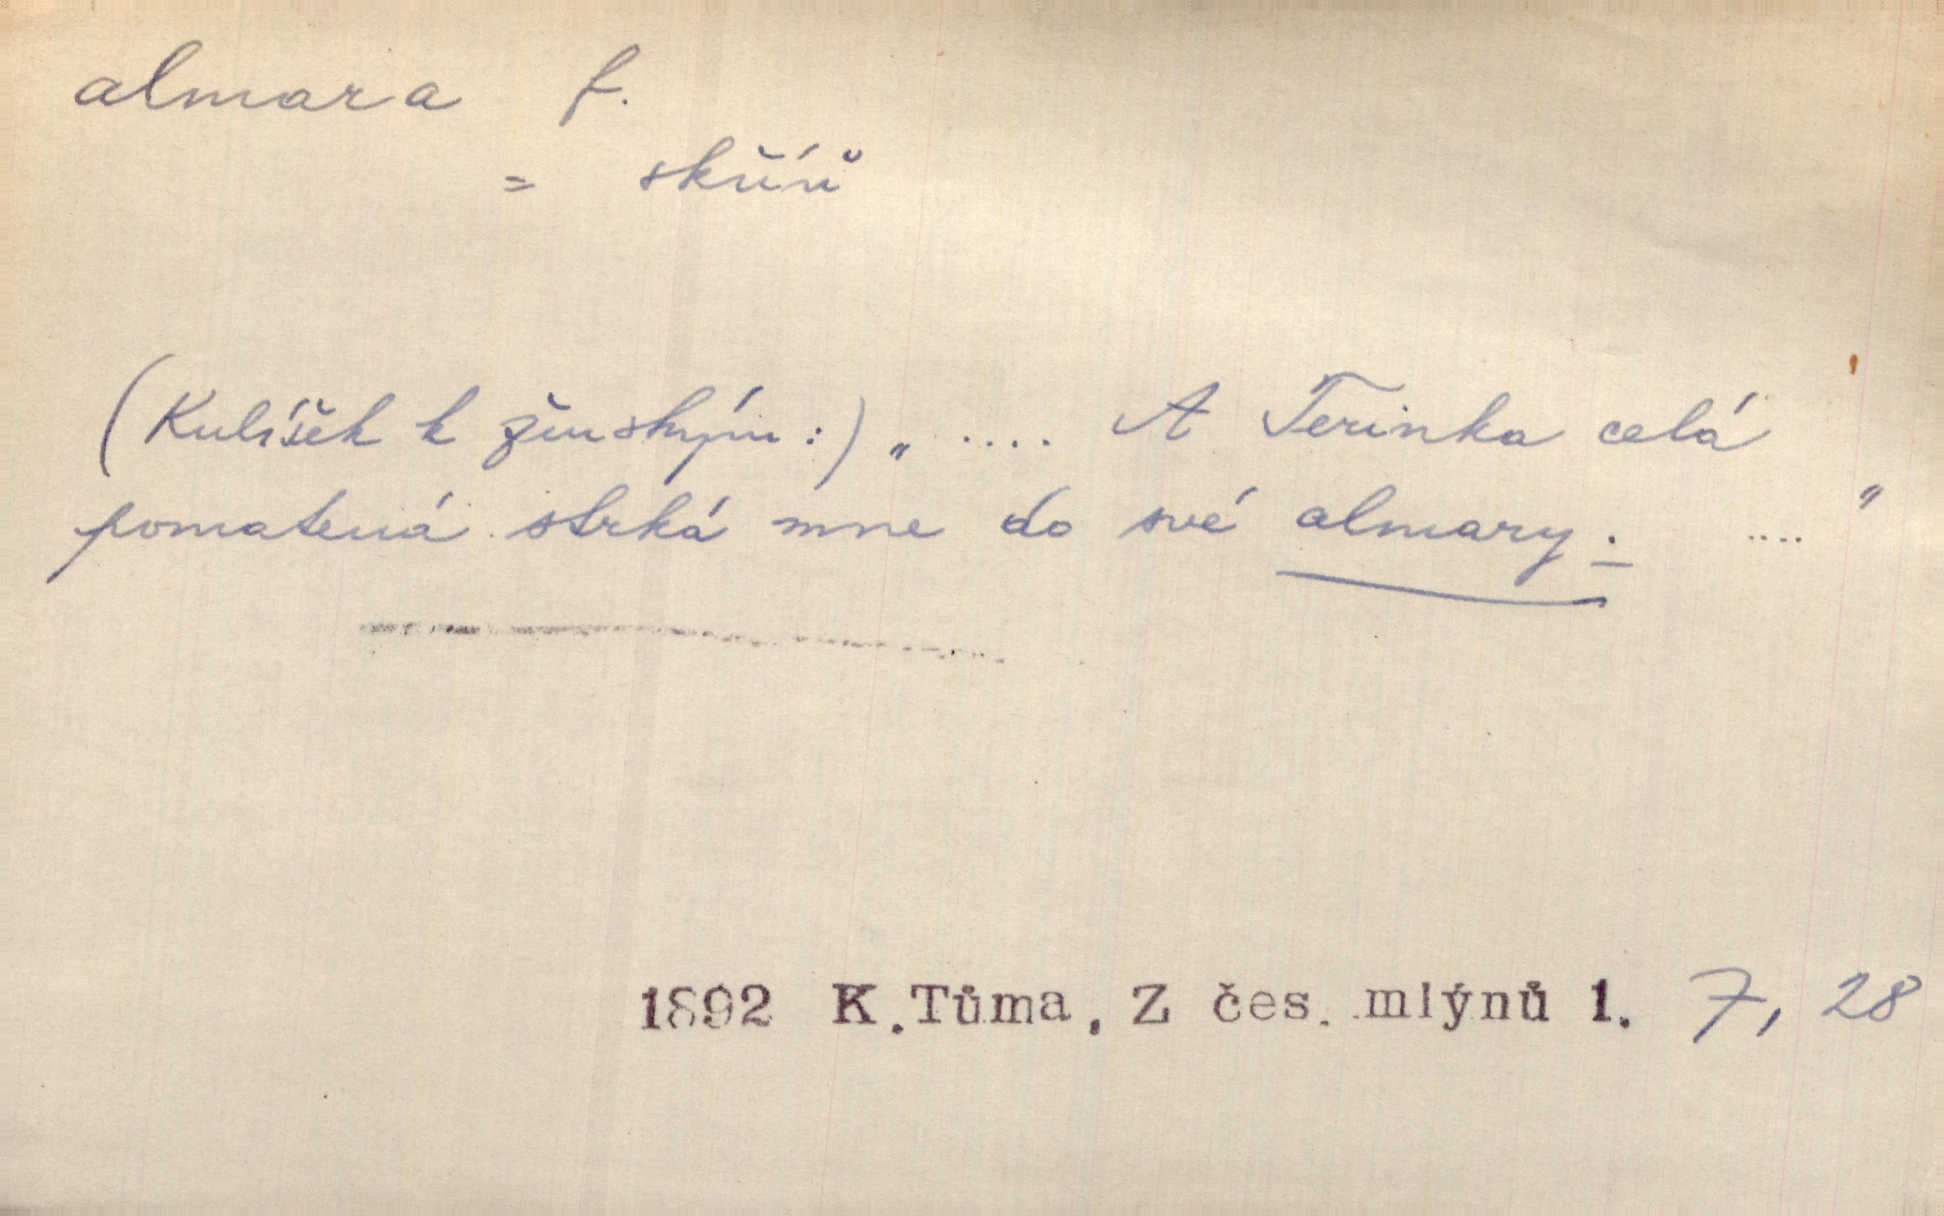 almara f.
= skříň
(Kulíšek k ženským:) „ .... A Terinka celá
pomatená strká mne do své almary. .... "
1892 K.Tůma, Z čes. mlýnů 1. 7, 28